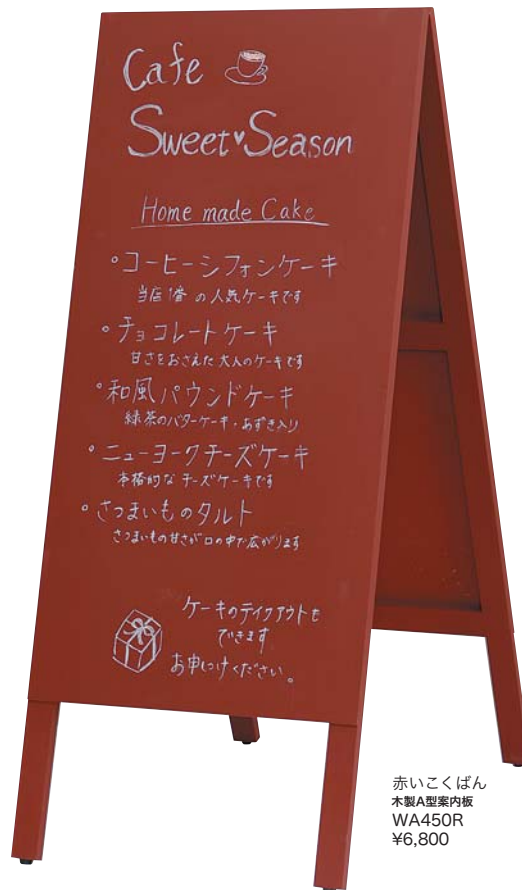 Cafe
Sweet♥Season
Home made Cake
°コーヒーシフォンケーキ
当店1番の人気ケーキです
°チョコレートケーキ
甘さをおさえた大人のケーキです
°和風パウンドケーキ
緑茶のバターケーキ・あずき入り
°ニューヨークチーズケーキ
本格的なチーズケーキです
°さつまいものタルト
さつまいもの甘さが口の中で広がります
ケーキのテイクアウトも
できます
お申しつけください。
赤いこくばん
木製A型案内板
WA450R
¥6,800